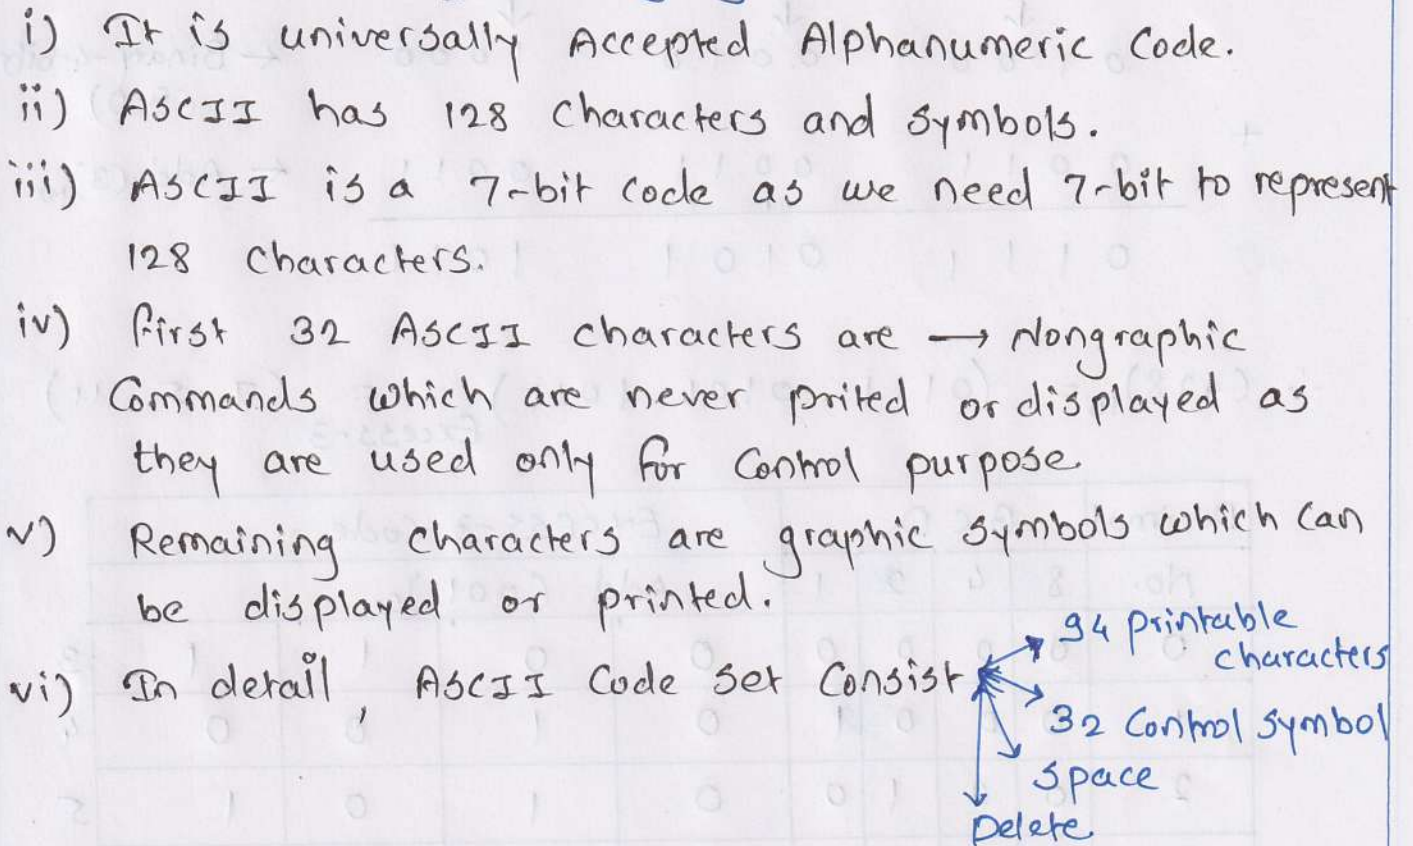 i) It is universally Accepted Alphanumeric Code.
ii) ASCII has 128 characters and symbols.
iii) ASCII is a 7-bit code as we need 7-bit to represent
128 characters.
iv) first 32 ASCII characters are → Nongraphic
Commands which are never prited or displayed as
they are used only for control purpose.
v) Remaining characters are graphic symbols which can
be displayed or printed.
94 printable
characters
vi) In detail, ASCII Code set Consist
32 Control symbol
space
Delete